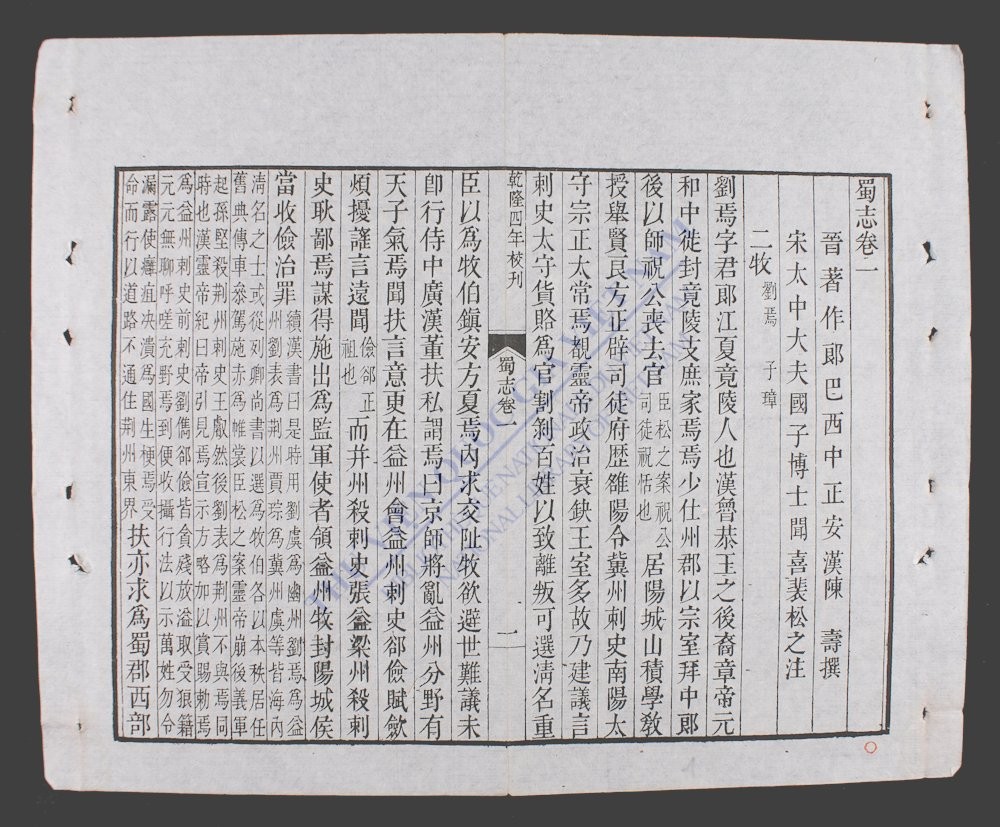 蜀志卷一
晉著作郎巴西中正安漢陳 壽撰
宋太中大夫國子博士聞喜裴松之注
二牧 劉焉 子璋
劉焉字君郎江夏竟陵人也漢魯恭王之後裔章帝元
和中徙封竟陵支庶家焉焉少仕州郡以宗室拜中郎
後以師祝公喪去官 臣松之案祝公司徒祝恬也 居陽城山積學教
授舉賢良方正辟司徒府歷雒陽令冀州刺史南陽太
守宗正太常焉覩靈帝政治衰缺王室多故乃建議言
刺史太守貨賂爲官割剝百姓以致離叛可選清名重
乾隆四年校刊
蜀志卷一
一
臣以爲牧伯鎮安方夏焉內求交阯牧欲避世難議未
卽行侍中廣漢董扶私謂焉曰京師將亂益州分野有
天子氣焉聞扶言意更在益州會益州刺史郤儉賦歛
煩擾謠言遠聞 儉郤正祖也 而并州殺刺史張益梁州殺刺
史耿鄙焉謀得施出爲監軍使者領益州牧封陽城侯
當收儉治罪 續漢書曰是時用劉虞爲幽州劉焉爲益
州劉表爲荆州賈琮爲冀州虞等皆海內
清名之士或從列卿尚書以選爲牧伯各以本秩居任
舊典傳車參駕施赤爲帷裳臣松之案靈帝崩後義軍
起孫堅殺荆州刺史王叡然後劉表爲荆州不與焉同
時也漢靈帝紀曰帝引見焉宣示方略加以賞賜勅焉
爲益州刺史前刺史劉雋郤儉皆貪殘放溢取受狼籍
元元無聊呼嗟充野焉到便收攝行法以示萬姓勿令
漏露使癰疽決潰爲國生梗焉受
命而行以道路不通住荆州東界 扶亦求爲蜀郡西部